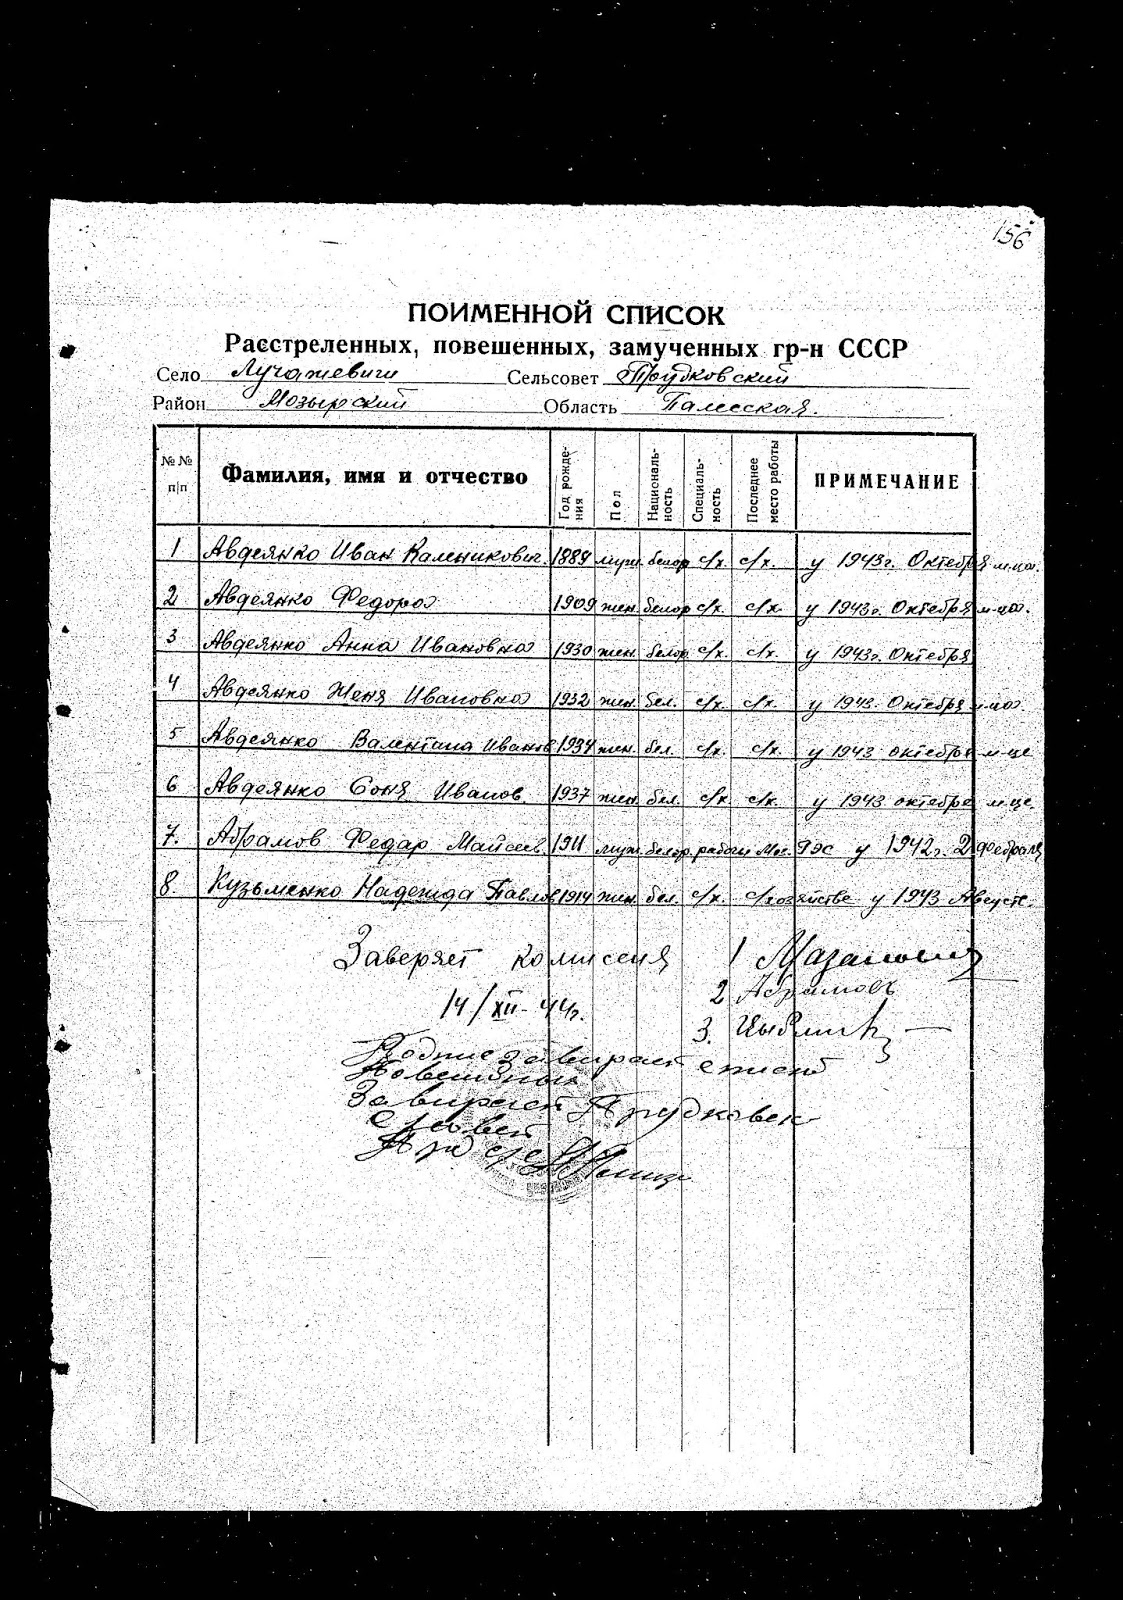 156
ПОИМЕННОЙ СПИСОК
Расстреленных, повешенных, замученных гр-н СССР
Село Лучажевичи Сельсовет Прудковский
Район Мозырский Область Палеская.
№№ п|п Фамилия, имя и отчество Год рожде-ния Пол Националь-ность Специаль-ность Последнее место работы ПРИМЕЧАНИЕ
1 Авдеянко Иван Каленикович. 1889 муж. белор с/х. с/х. у 1943г. Октября м-ца.
2 Авдеянко Федора 1909 жен. белор с/х. с/х. у 1943г. Октября м-ца.
3 Авдеянко Анна Ивановна 1930 жен. белор с/х. с/х. у 1943г. Октября
4 Авдеянко Женя Ивановна 1932 жен. бел. с/х. с/х. у 1943. Октября м-ца.
5 Авдеянко Валентина Иванов 1934 жен. бел. с/х. с/х. у 1943 октября м-це
6 Авдеянко Соня Иванов. 1937 жен. бел. с/х. с/х. у 1943 октебре м-це
7. Абрамов Федар Майсеев. 1911 муж. белор. рабочи Моз. ГЭС у 1942г. 2 февраля
8. Кузьменко Надежида Павлов 1914 жен. бел. с/х. с/хозяйстве у 1943 Августе.
Заверяет комиссия 1
14/XII-44г. 2 Абрамов
3.
Подписе завирает списка
Завирает Прудковск
с/совет
Пред с/с